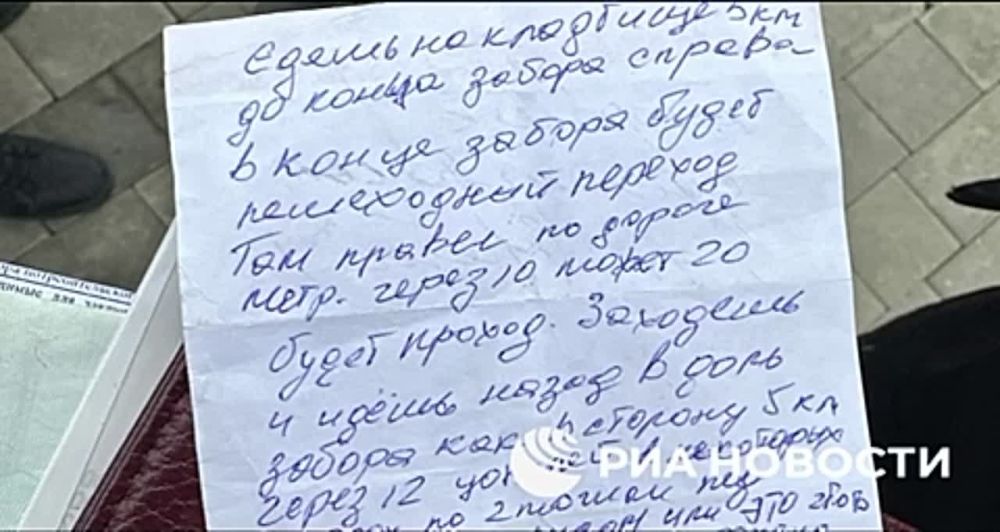 Едешь на кладбище 5 км
до конца забора справа
в конце забора будет
пешеходный переход
Там правел по дороге
метр. через 10 может 20
будет проход. Заходешь
и идёшь назад в доль
забора как в сторону 5 км
через 12 которых
по 2 могили
или это
данные для
РИА НОВОСТИ